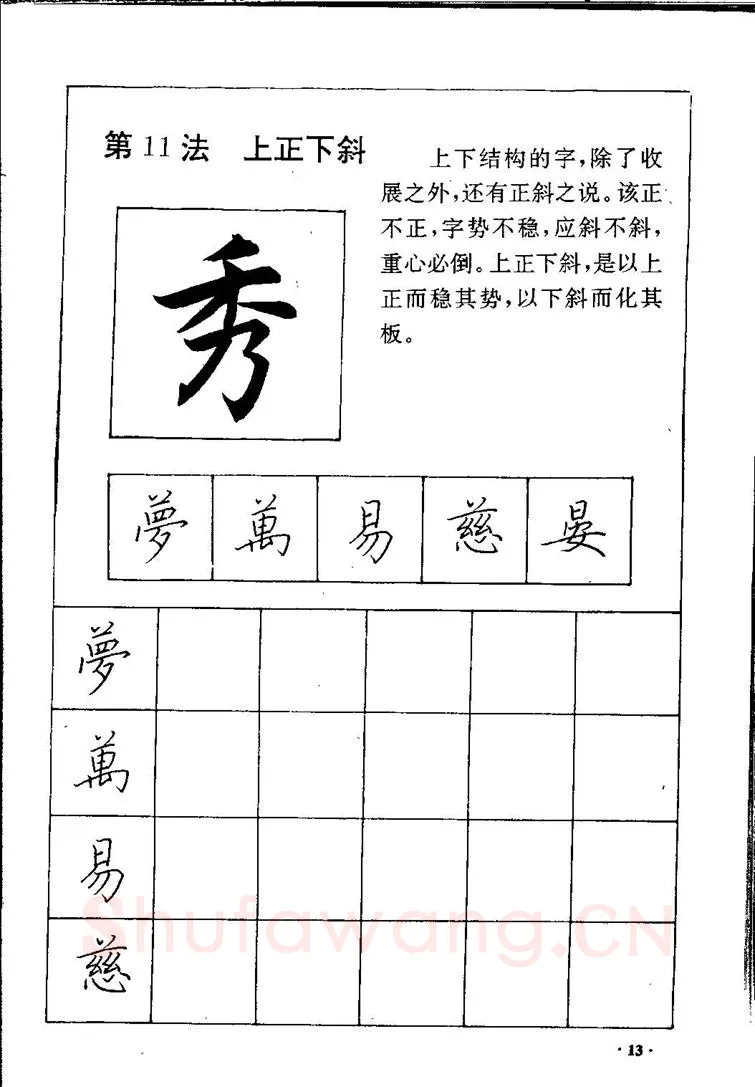 第11法 上正下斜
上下结构的字,除了收
展之外,还有正斜之说。该正
不正,字势不稳,应斜不斜,
重心必倒。上正下斜,是以上
正而稳其势,以下斜而化其
板。
秀
夢 萬 易 慈 晏
夢
萬
易
慈
Shufawang.CN
·13·